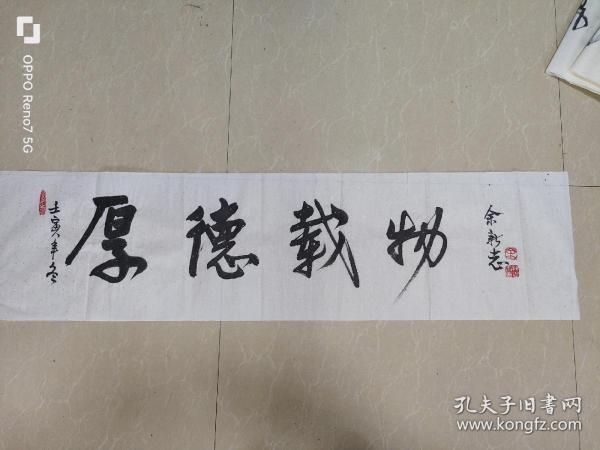 OPPO Reno7 5G
壬寅年冬
厚德载物
余新志
孔夫子旧书网
www.kongfz.com